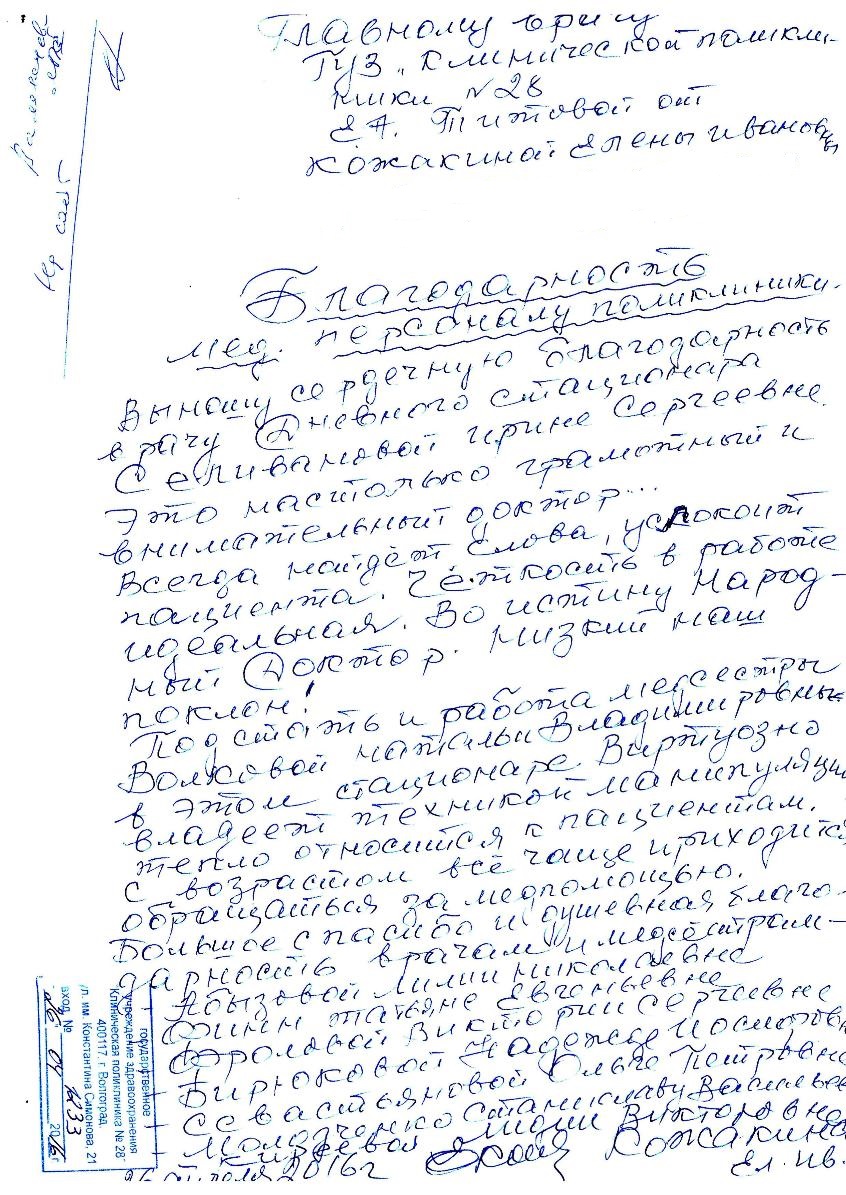 Главному врачу
ГУЗ „Клинической поликли-
ники №28
Е.А. Титовой от
Кожакиной Елены Ивановны
на сайт
Благодарность
мед. персоналу поликлиники.
Выношу сердечную благодарность
врачу Дневного стационара
Селивановой Ирине Сергеевне.
Это настолько грамотный и
внимательный доктор...
Всегда найдёт слова, успокоит
пациента. Чёткость в работе
идеальная. Во истину Народ-
ный Доктор. Низкий наш
поклон!
Под стать и работа медсестры
Волковой Натальи Владимировны
в этом стационаре. Виртуозно
владеет техникой манипуляции
тепло относится к пациентам.
С возрастом всё чаще приходится
обращаться за медпомощью.
Большое спасибо и душевная благо-
дарность врачам и медсёстрам-
Абызовой Лилии Николаевне
Финн Татьяне Евгеньевне
Фроловой Виктории Сергеевне
Бирюковой Надежде
Севастьяновой Ольге Петровне
Станиславу Васильев
Киреевой Лидии Викторовне
26 апреля 2016г Кожакина
Ел. Ив.
государственное
учреждение здравоохранения
"Клиническая поликлиника № 28"
400117, г. Волгоград,
ул. им. Константина Симонова, 21
вход. № 1433
26 04 2016 г.